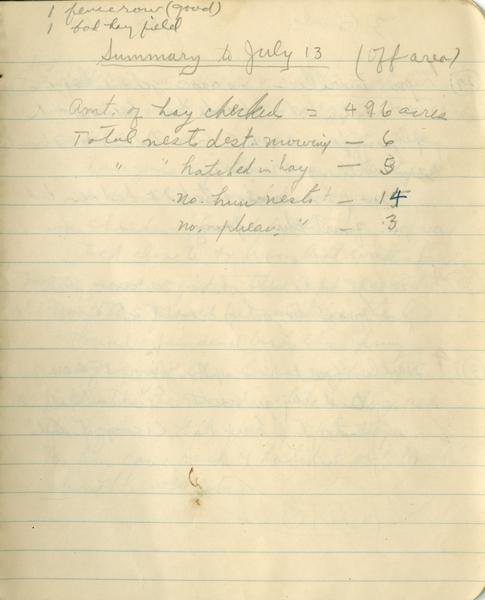 1 fencerow (good)
1 bad hay field
Summary to July 13 (Off area)
Amt. of hay checked = 496 acres
Total nests dest. mowing — 6
" " hatched in hay — 5
no. hun nests — 14
no. pheas. " — 3